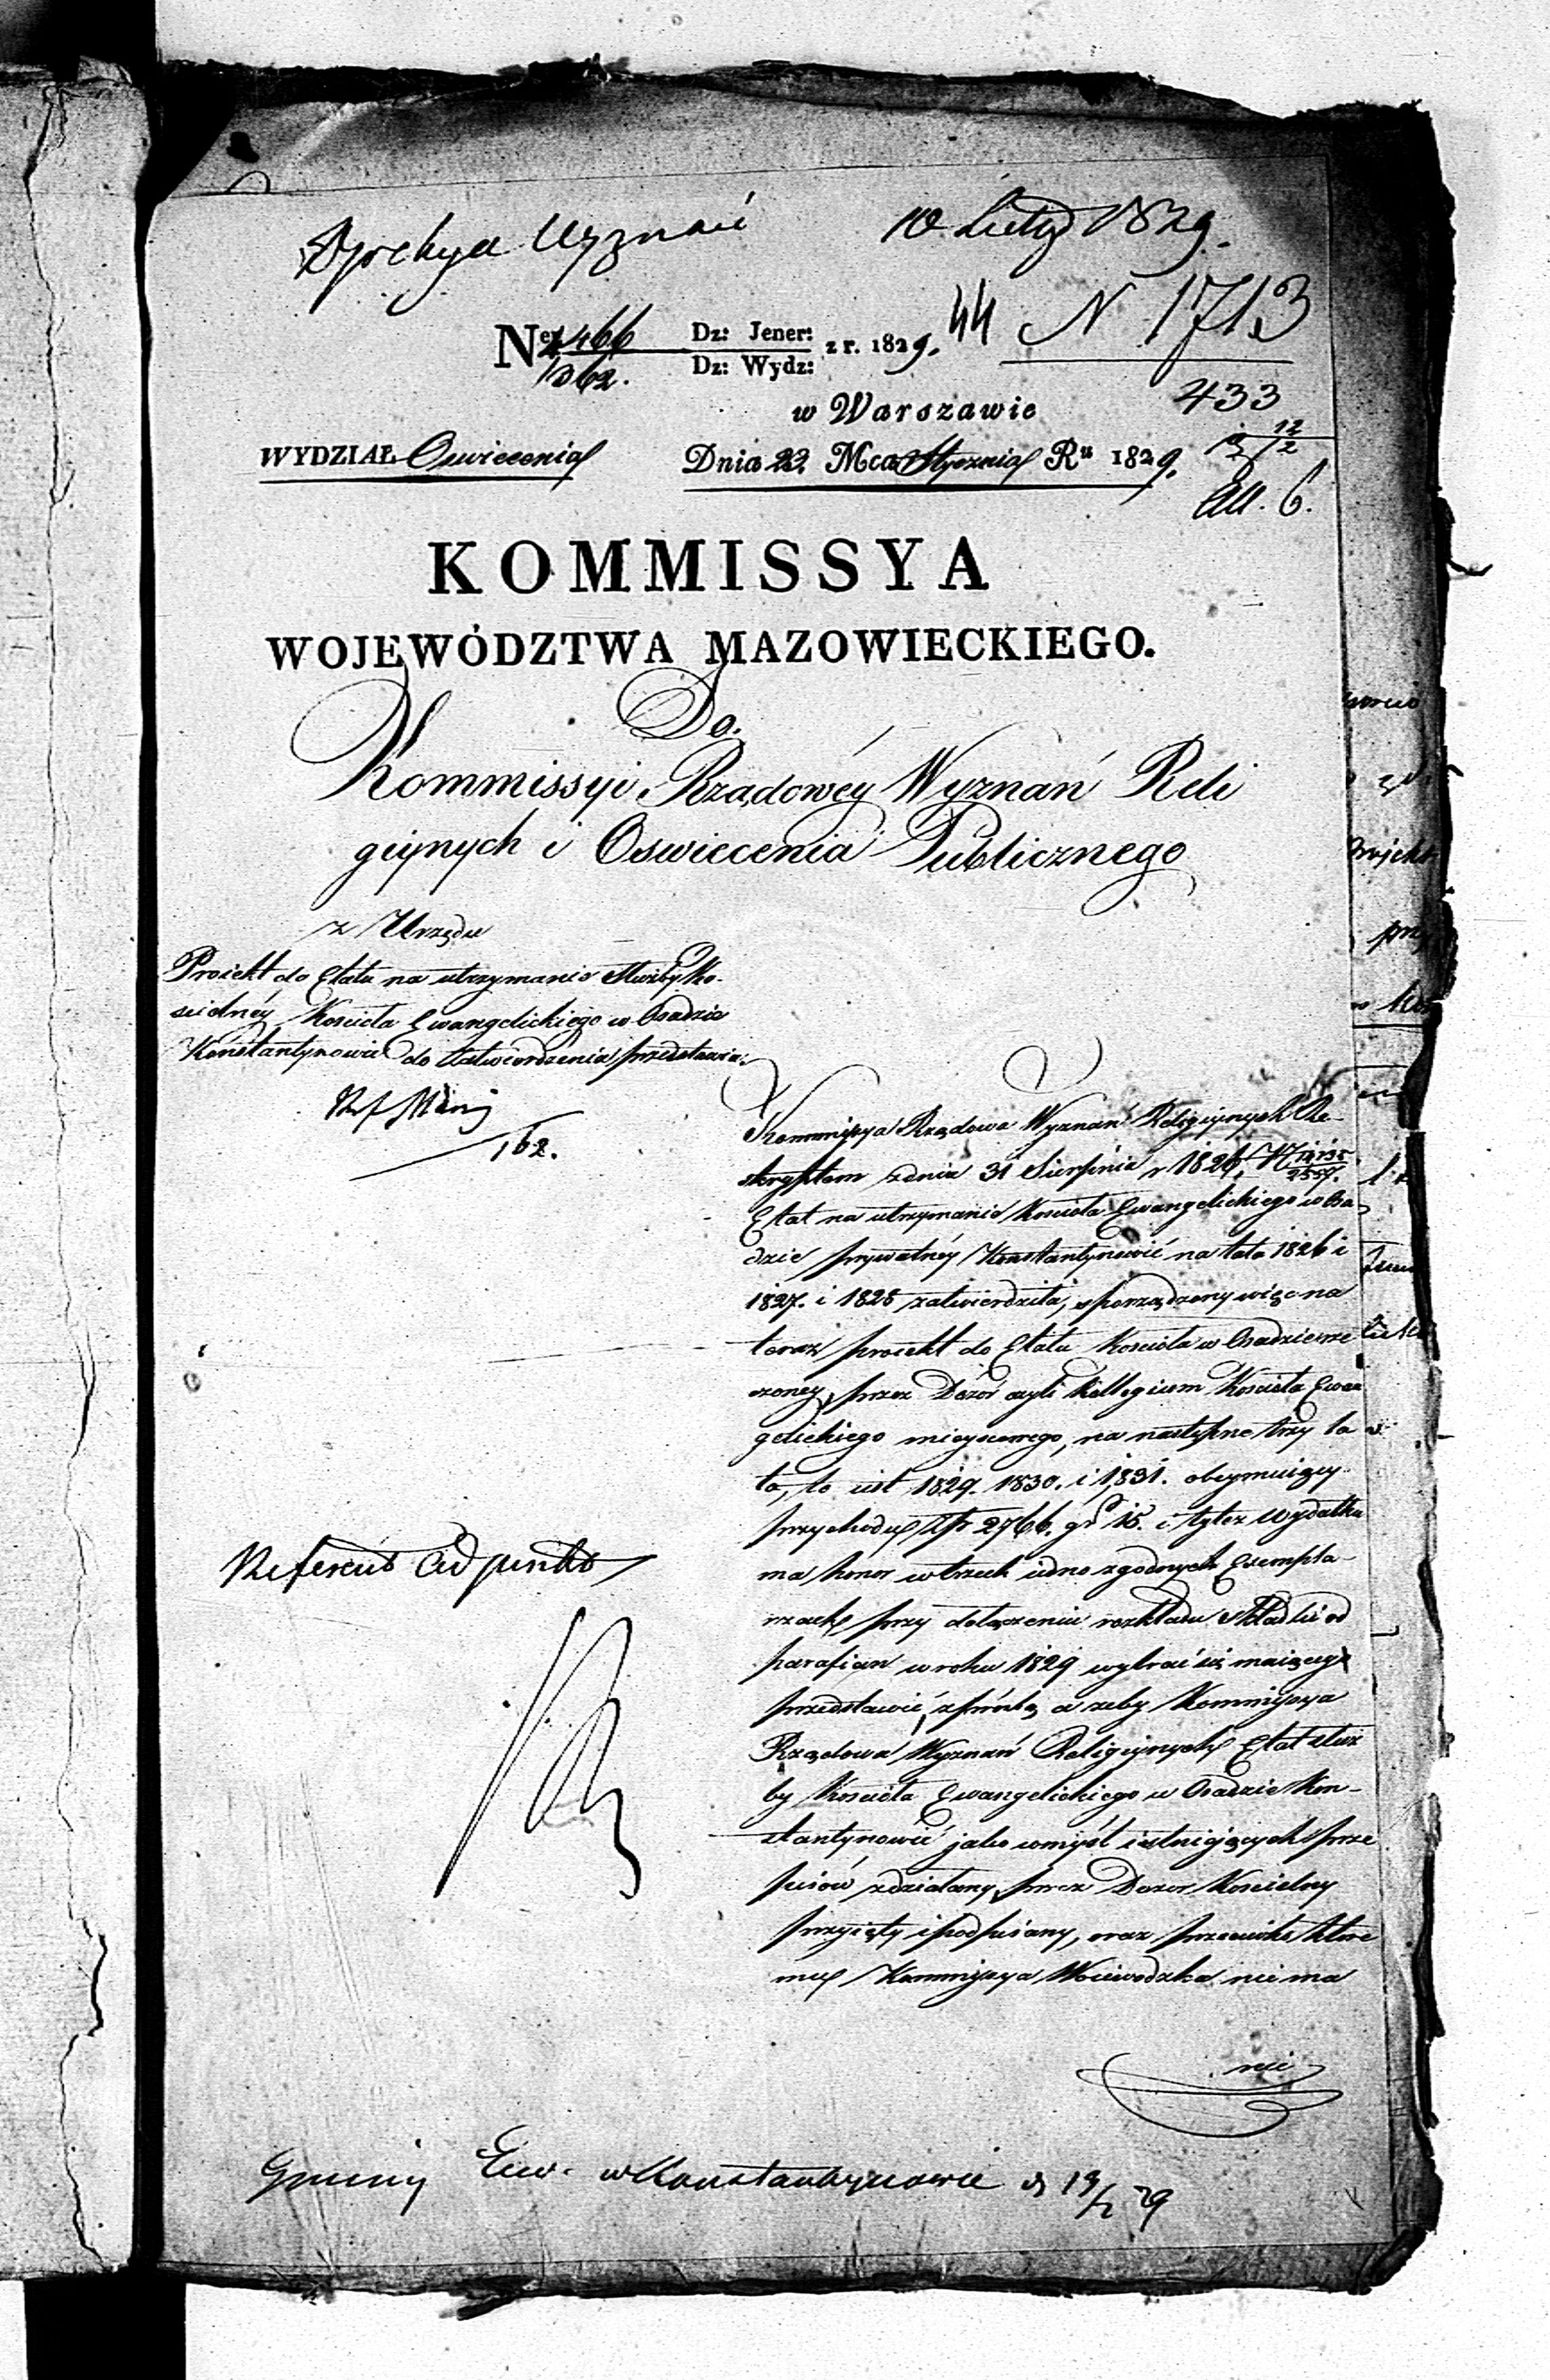 Dyrekcya Wyznań
10 Luty 1829.
44 N 1713
Ner 2466 Dz: Jener: z r. 1829.
1362. Dz: Wydz:
433
w Warszawie
12/2
WYDZIAŁ Oswiecenia Dnia 22. Mca Stycznia Ru 1829.
All. 6.
KOMMISSYA
WOJEWÓDZTWA MAZOWIECKIEGO.
Do.
Kommissyi Rządowéy Wyznań Reli
giynych i Oswiecenia Publicznego
z Urzędu
Proiekt do Etatu na utrzymanie Służby Ko-
scielnéy Kościoła Ewangelickiego w Osadzie
Konstantynowie do zatwierdzenia przedstawia.
162.
Kommissya Rządowa Wyznań Religiynych Re-
skryptem z dnia 31 Sierpnia r 1826. N
Etat na utrzymanie Kościoła Ewangelickiego w Osa-
dzie prywatnéy Konstantynowie na lata 1826 i
1827. i 1828 zatwierdziła, sporządzony więc na
teraz proiekt do Etatu Kościoła w Osadzie rze
czoney, przez Dozór czyli Kollegium Kościoła Ewan
gelickiego mieyscowego, na następne trzy la
ta, to iest 1829. 1830. i 1831. obeymuiący
przychodu Złp 2766. gr 15. i tyleż wydatku
ma honor w trzech iedno zgodnych Exempla-
rzach przy dołączeniu rozkładu składki od
parafian w roku 1829 wybrać się maiącey
przedstawić, z prośbą a żeby Kommissya
Rządowa Wyznań Religiynych Etat służ
by Kościoła Ewangelickiego w Osadzie Kon-
stantynowie jako w myśl istniejących prze
pisów zdziałany, przez Dozor Kościelny
przyięty i podpisany, oraz przeciwko które
mu Kommissya Woiewodzka nie ma
nic
Referent Adjunkt
Gminy Ew. w Konstantynowie d 19/2 29